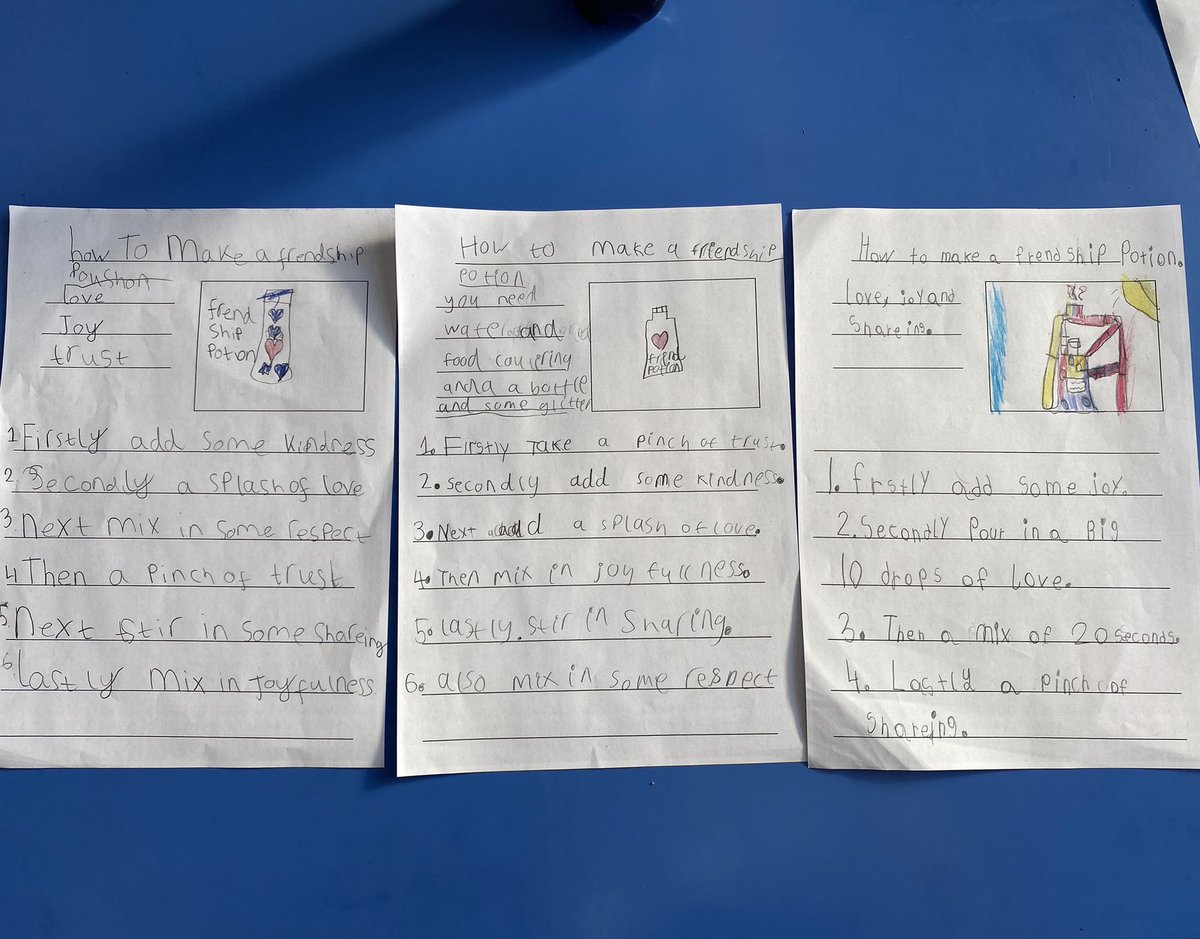 how To Make a frendship
Poushon
love
Joy
trust
frend
Ship
Potion
1 Firstly add some kindness
2 Secondly a splash of love
3. Next mix in some respect
4 Then a Pinch of trust
5. Next stir in some shareing
6 lastly mix in Joyfulness
How to make a friendship
potion
you need
water and
food couLering
and a a bottle
and some glitter
friend
potion
1. Firstly Take a pinch of trust.
2. secondly add some kindness.
3. Next add a splash of love.
4. Then mix in joy fullness.
5. lastly. stir in Sharing.
6. also mix in some respect
How to make a frendship Potion.
Love, joy and
Shareing.
1. frstly add some joy.
2. Secondly Pour in a BIg
10 drops of love.
3. Then a mix of 20 seconds.
4. Lastly a pinch of
Shareing.